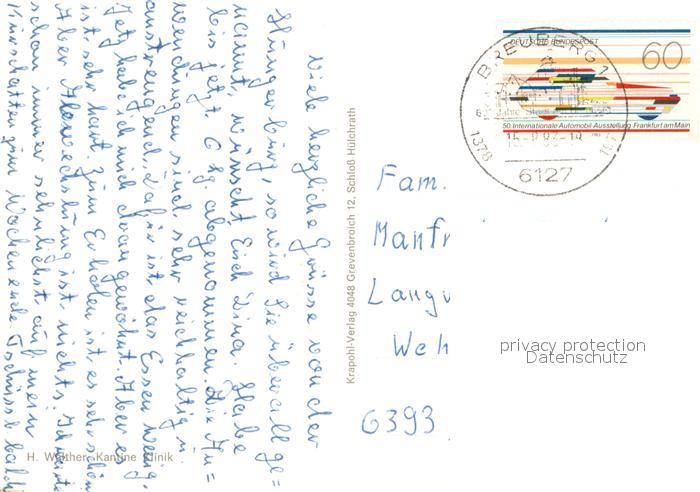 Viele herzliche Grüsse von der
Hungerburg, so wird sie überall ge=
nannt, wünscht Euch Lina. Habe
bis jetzt 6 kg abgenommen. Die An=
wendungen sind sehr reichhaltig u.
anstrengend, dafür ist das Essen wenig.
Jetzt habe ich mich dran gewöhnt. Aber es
ist sehr hart. Zum Erholen ist es sehr schön
Aber Abwechslung ist nichts,
schon immer sehnlichst auf mein
zum Wochenende. Tschüss bald
H. Walther, Kantine Klinik
Krapohl-Verlag 4048 Grevenbroich 12, Schloß Hülchrath
DEUTSCHE BUNDESPOST
60
50. Internationale Automobil-Ausstellung Frankfurt am Main
BREUBERG 1
1378
6127
Fam.
Manfr
Lang
Weh
6393
privacy protection
Datenschutz